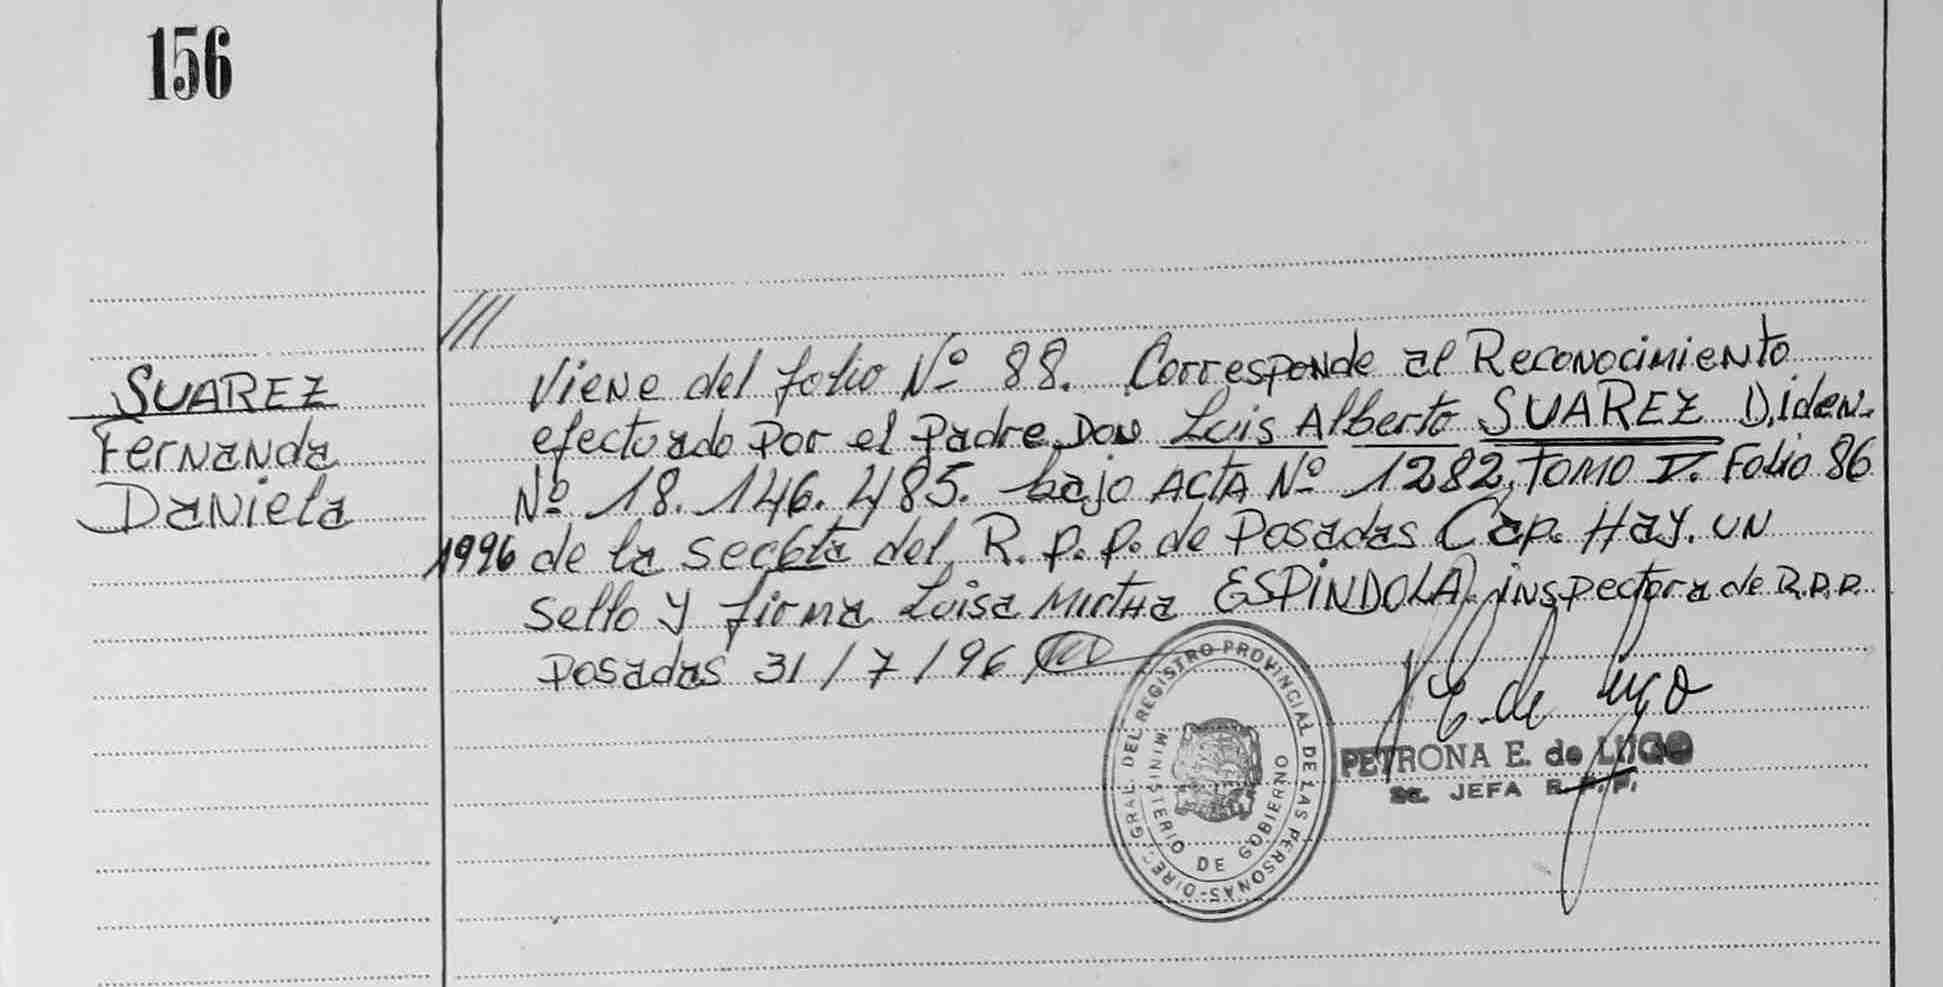 156
///
SUAREZ
Fernanda
Daniela
Viene del folio Nº 88. Corresponde al Reconocimiento
efectuado Por el Padre Don Luis Alberto SUAREZ D.iden.
Nº 18.146.485. bajo ACTA Nº 1282, TOMO V. Folio 86
1996 de la secc 6ta del R.P.P. de Posadas Cap. Hay. UN
sello y firma Luisa Mirtha ESPINDOLA inspectora de R.P.P.
Posadas 31/7/96
P. E. de Lugo
DIREC. GRAL. DEL REGISTRO PROVINCIAL DE LAS PERSONAS-
MINISTERIO DE GOBIERNO
PETRONA E. de LUGO
JEFA R.P.P.